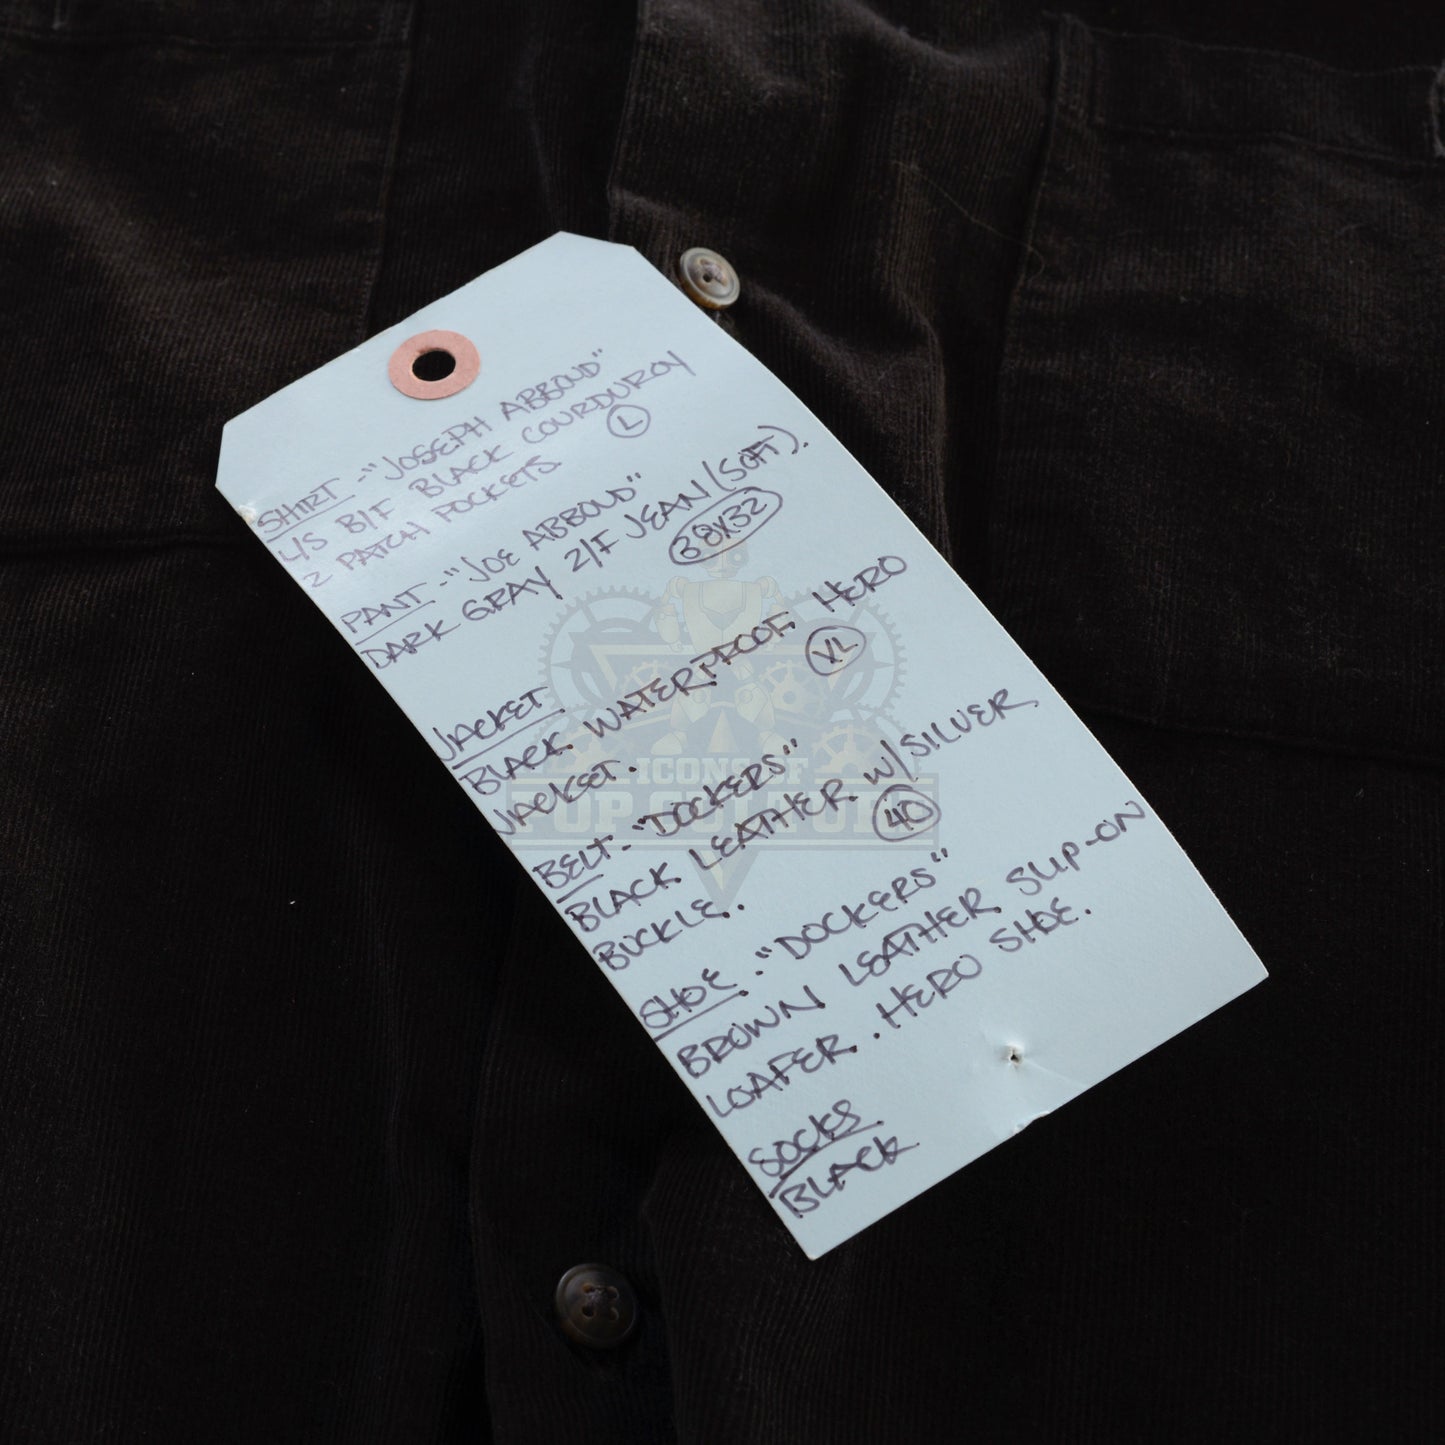 SHIRT - "JOSEPH ABBOUD"
L/S B/F BLACK COURDUROY
2 PATCH POCKETS. L
PANT - "JOE ABBOUD"
DARK GRAY Z/F JEAN (SOFT).
38X32
JACKET.
BLACK WATERPROOF HERO
JACKET. XL
BELT - "DOCKERS"
BLACK LEATHER W/SILVER
BUCKLE. 40
SHOE. "DOCKERS"
BROWN LEATHER SLIP-ON
LOAFER. HERO SHOE.
SOCKS
BLACK
ICONS OF
POP CULTURE